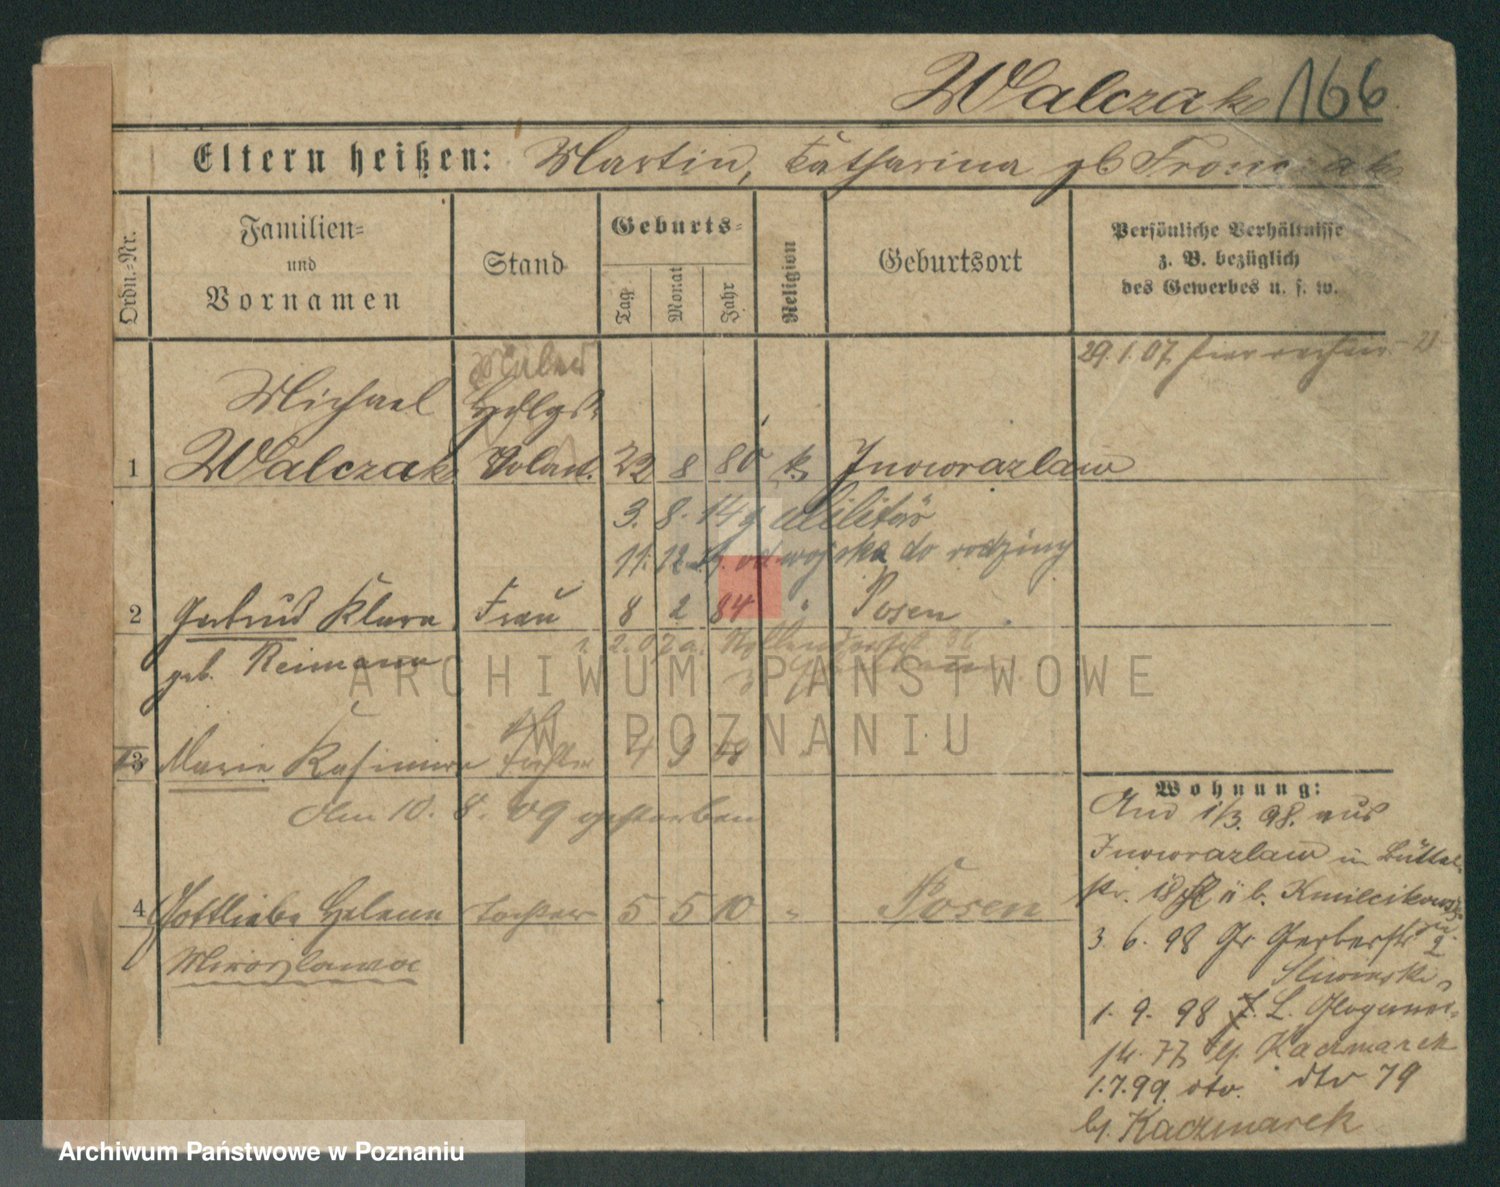 Walczak 166
Eltern heißen: Martin, Katharina gb Fronczak
Ordn.-Nr.
Familien-
und
Vornamen
Stand
Geburts-
Tag
Monat
Jahr
Religion
Geburtsort
Persönliche Verhältnisse
z. B. bezüglich
des Gewerbes u. s. w.
29.1.07.
Michael Hdlgs
1 Walczak Volont. 22 8 80 k. Inowrazlaw
3. 8. 14 z Militär
11. 12. od wojska do rodziny
2 Gertrud Klara Frau 8 2 84 " Posen
geb. Reimann
2. 07
3 Marie Kasimira Tochter 4 3
Am 10. 8. 09 gestorben
4 Gottliebe Helene Tochter 5 5 10 " Posen
Miroslawa
Wohnung:
And 1/3. 98. aus
Inowrazlaw in Büttel-
str. 18 b. Kmilcikowski
3. 6. 98 Gr. Gerberstr 2
Sliwinski
1. 9. 98 Glogauer-
str. 77 bj. Kaczmarek
1.7.99. dto. dto 79
bj. Kaczmarek
ARCHIWUM PAŃSTWOWE
W POZNANIU
Archiwum Państwowe w Poznaniu